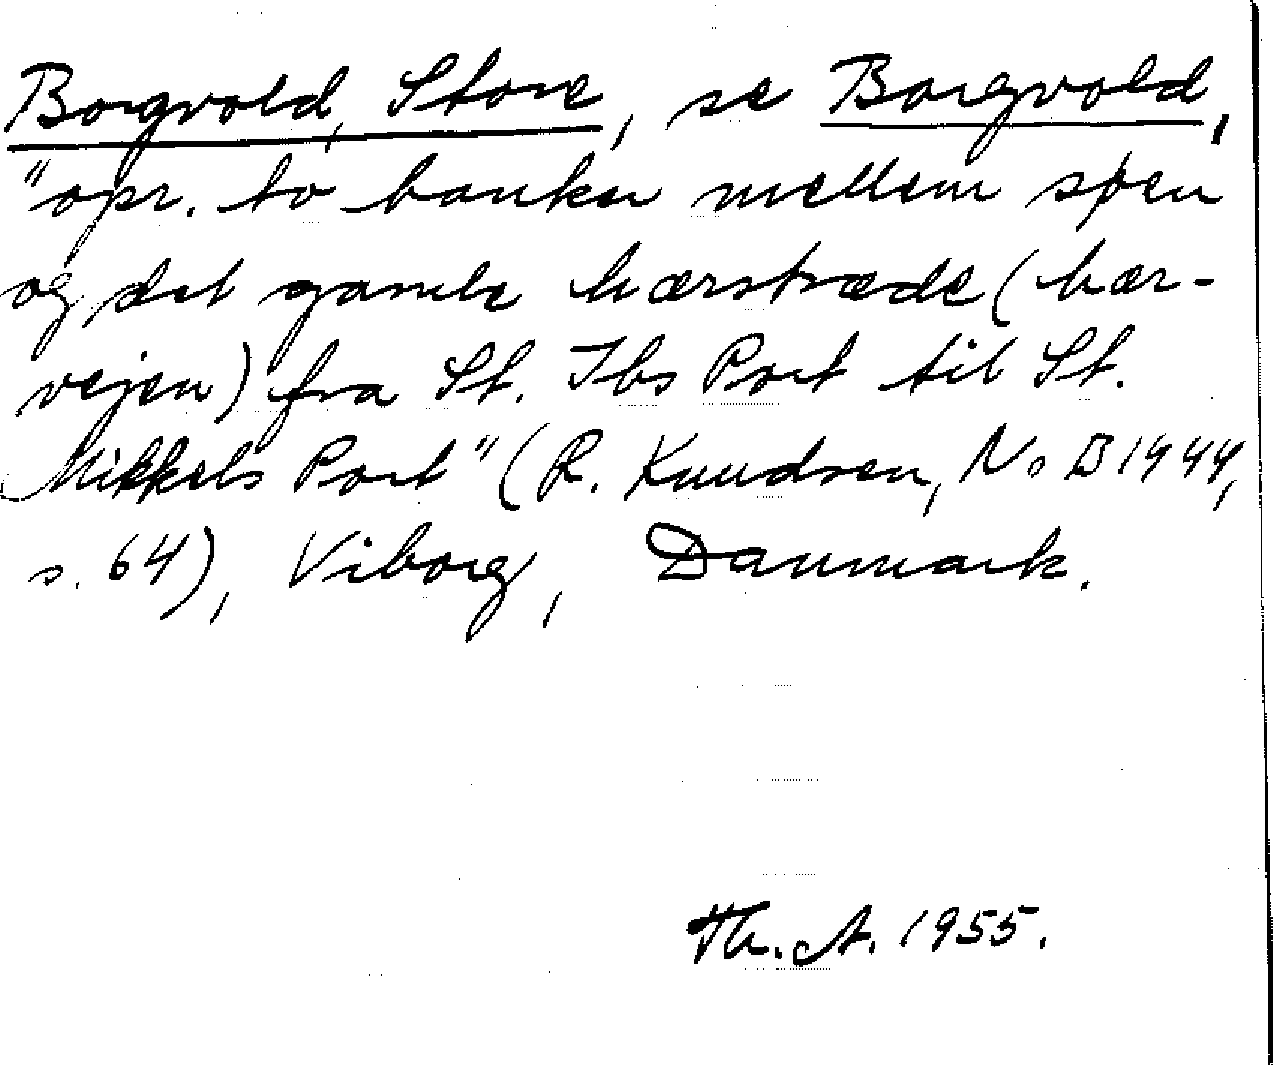 Borgvold, Store, se Borgvold,
"opr. to banker mellem søen
og det gamle hærstræde (hær-
vejen) fra St. Ibs Port til St.
Mikkels Port" (R. Knudsen, NoB 1944,
s. 64), Viborg, Danmark.
Th. A. 1955.